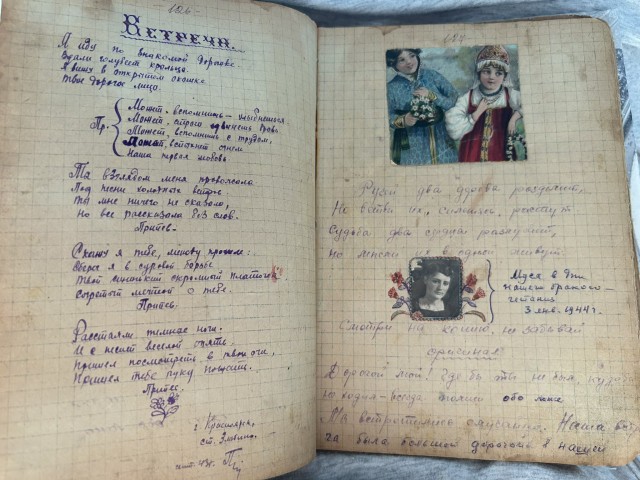 126
Встречи.
Я иду по знакомой дорожке.
Вдали голубеет крыльцо.
Я вижу в открытом окошке
Твоё дорогое лицо.
Пр.
Может, вспомнишь - улыбнешься,
Может, строго сдвинешь бровь
Может, вспомнишь с трудом,
Может, вспыхнет огнем
Наша первая любовь
Ты взглядом меня провожала
Под песни холодных ветров
Ты мне ничего не сказала,
Но все рассказала без слов.
Припев.
Скажу я тебе, минову прошлое:
Сберег я в суровой борьбе
Твой синенький скромный платочек
Согретый мечтой о тебе.
Припев.
Расстаяли темные ночи.
И с песней веселой опять
Пришел посмотреть в твои очи,
Пришел тебе руку пожать.
Припев.
г. Красноярск,
ст. Злобино.
127
Руби два дерева раздолбит,
Но ветви их, сплетясь, растут
Судьба два сердца разлучит,
Но мысли их в одном живут
Муся в дни
нашего бракосо-
четания
3 янв. 1944 г.
Смотри на копию, не забывай
оригинал
Дорогой мой! Где бы ты не был,
не ходил - всегда помни обо мне
Мы встретились случайно. Наша
была большой дорогой в нашей